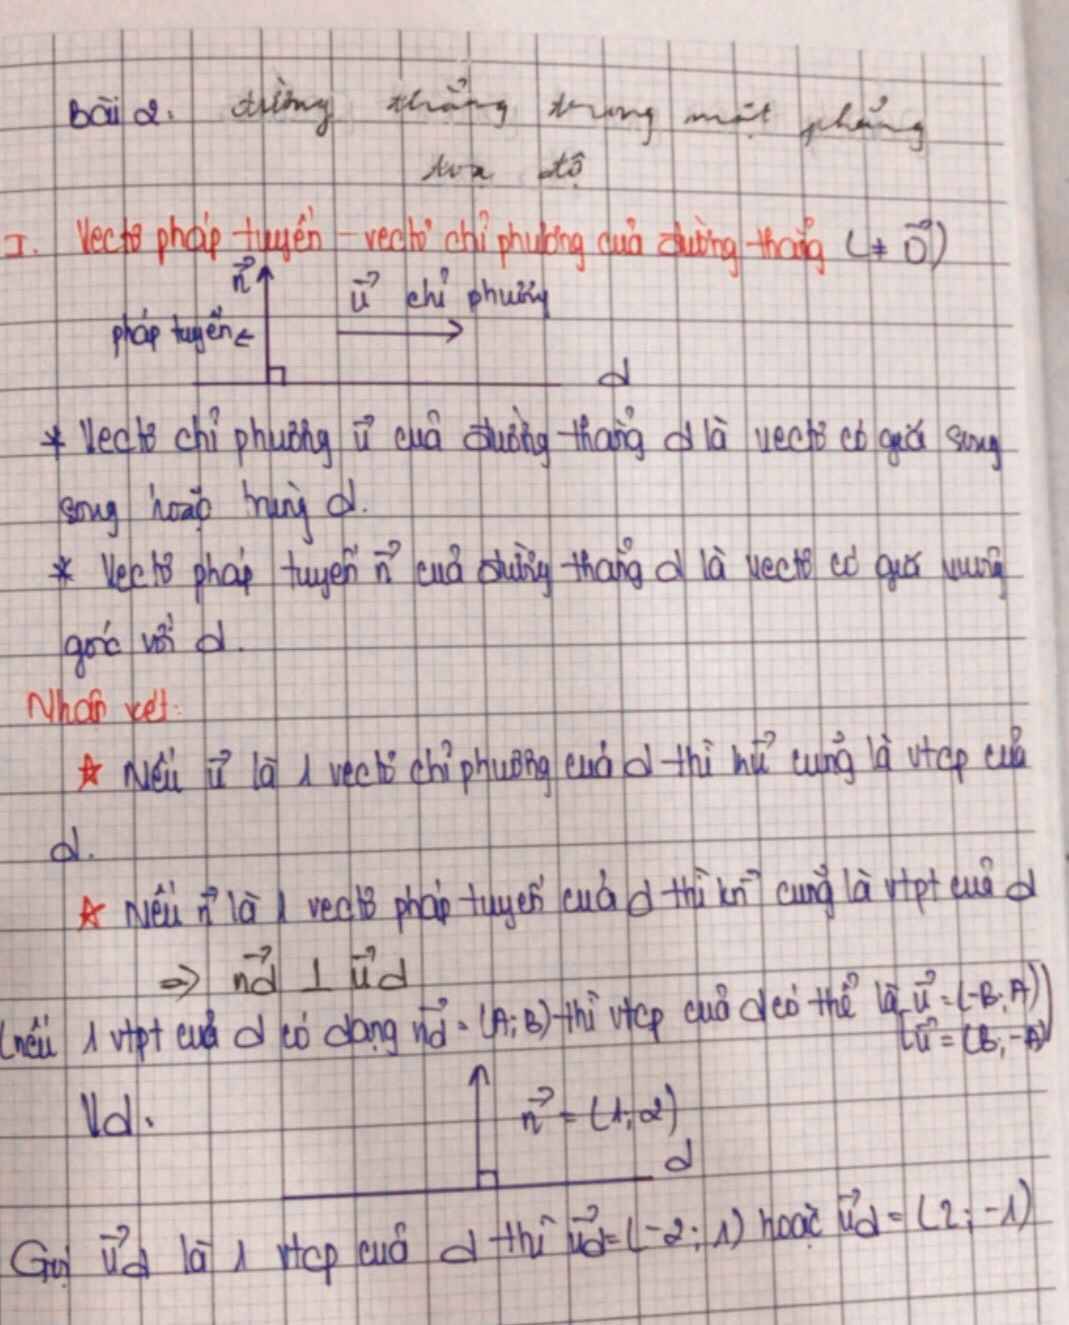 Bài 2. đường thẳng trong mặt phẳng
toạ độ
I. Vectơ pháp tuyến - vectơ chỉ phương của đường thẳng (≠ 0⃗)
n⃗
u⃗ chỉ phương
pháp tuyến ←
d
* Vectơ chỉ phương u⃗ của đường thẳng d là vectơ có giá song
song hoặc trùng d.
* Vectơ pháp tuyến n⃗ của đường thẳng d là vectơ có giá vuông
góc với d.
Nhận xét:
☆ Nếu u⃗ là 1 vectơ chỉ phương của d thì ku⃗ cũng là vtcp của
d.
☆ Nếu n⃗ là 1 vectơ pháp tuyến của d thì kn⃗ cũng là vtpt của d
⇒ n⃗d ⊥ u⃗d
(nếu 1 vtpt của d có dạng n⃗d = (A; B) thì vtcp của d có thể là [u⃗ = (-B; A)
[u⃗ = (B; -A))
Vd.
n⃗ = (1; 2)
d
Gọi u⃗d là 1 vtcp của d thì u⃗d = (-2; 1) hoặc u⃗d = (2; -1)